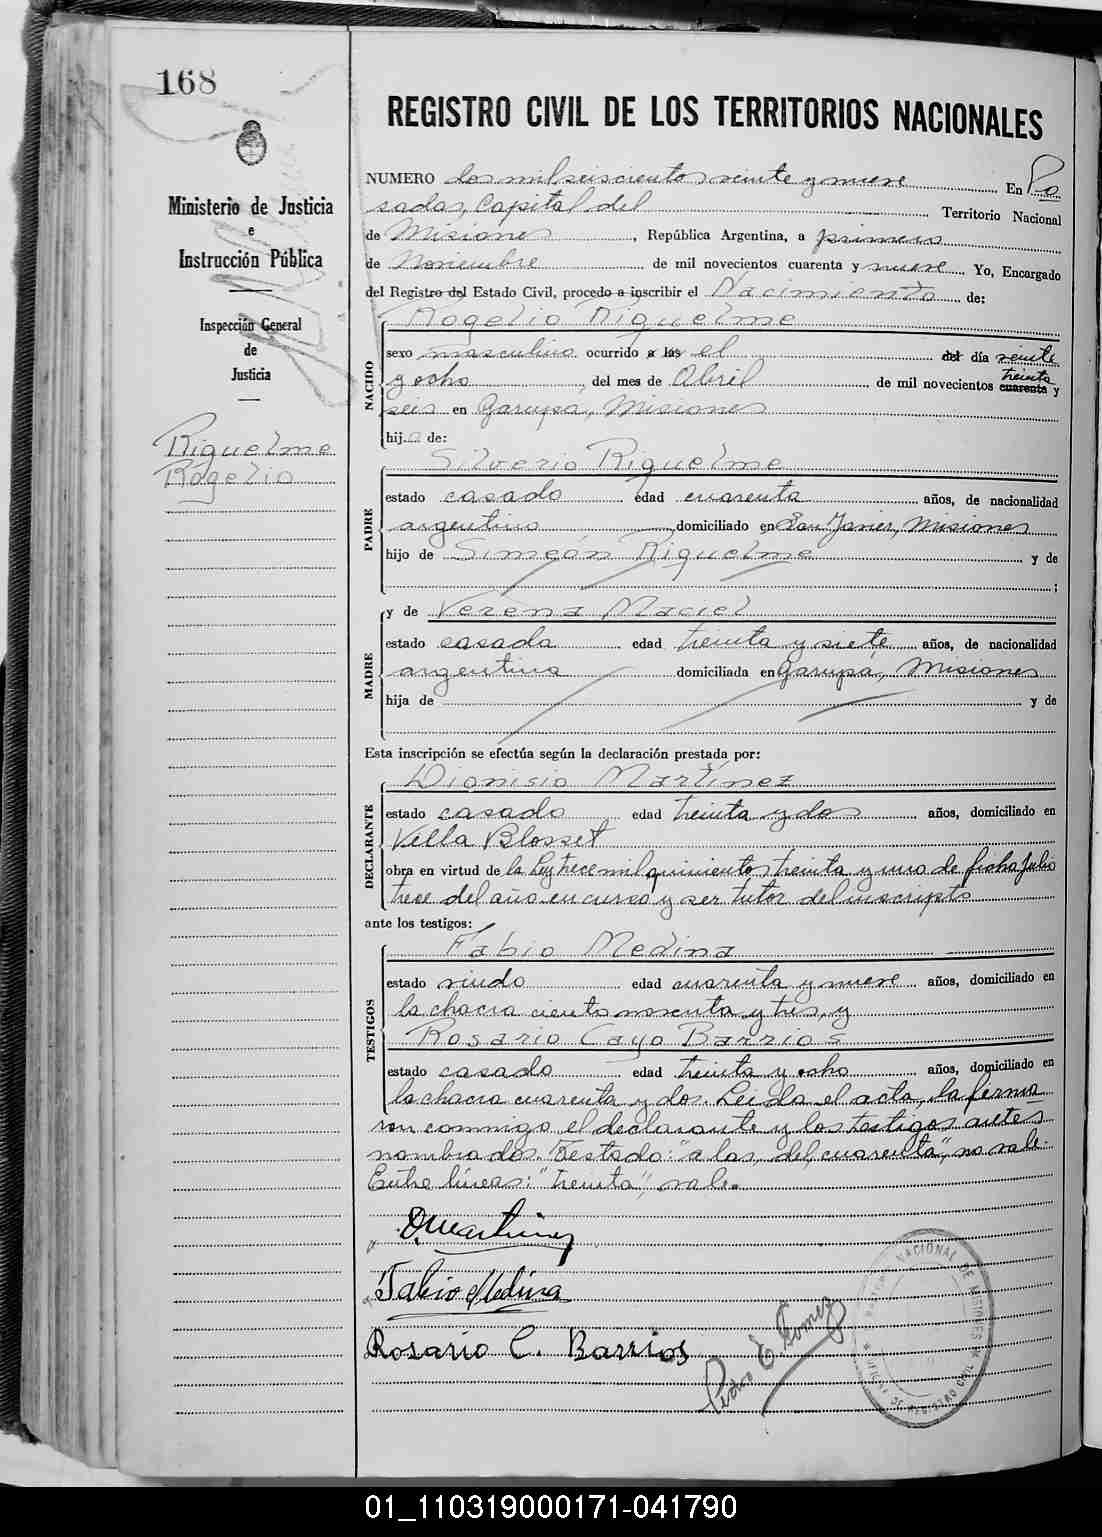 168
Ministerio de Justicia
e
Instrucción Pública
Inspección General
de
Justicia
Riquelme
Rogelio
REGISTRO CIVIL DE LOS TERRITORIOS NACIONALES
NUMERO dos mil seiscientos veinte y nueve En Po
sadas, Capital del Territorio Nacional
de Misiones, República Argentina, a primero
de Noviembre de mil novecientos cuarenta y nueve Yo, Encargado
del Registro del Estado Civil, procedo a inscribir el Nacimiento de:
Rogelio Riquelme
NACIDO
sexo masculino ocurrido a las el del día veinte
y ocho, del mes de Abril de mil novecientos cuarenta treinta y
seis en Garupá, Misiones
hijo de:
Silverio Riquelme
PADRE
estado casado edad cuarenta años, de nacionalidad
argentino, domiciliado en San Javier, Misiones
hijo de Simeón Riquelme y de
;
y de Verena Maciel
MADRE
estado casada edad treinta y siete años, de nacionalidad
argentina domiciliada en Garupá, Misiones
hija de y de
Esta inscripción se efectúa según la declaración prestada por:
Dionisio Martínez
DECLARANTE
estado casado edad treinta y dos años, domiciliado en
Villa Blosset
obra en virtud de la Ley trece mil quinientos treinta y uno de fecha Julio
trece del año en curso y ser tutor del inscripto
ante los testigos:
Fabio Medina
TESTIGOS
estado viudo edad cuarenta y nueve años, domiciliado en
la chacra ciento noventa y tres, y
Rosario Cayo Barrios
estado casado edad treinta y ocho años, domiciliado en
la chacra cuarenta y dos. Leida el acta, la firma
ron conmigo el declarante y los testigos antes
nombrados. Testado: "a las, del, cuarenta", no vale.
Entre líneas: "treinta", vale.
D. Martinez
Fabio Medina
Rosario C. Barrios
Pedro E. Gomez
NACIONAL DE MISIONES
OFICINA DE REGISTRO CIVIL
01_110319000171-041790